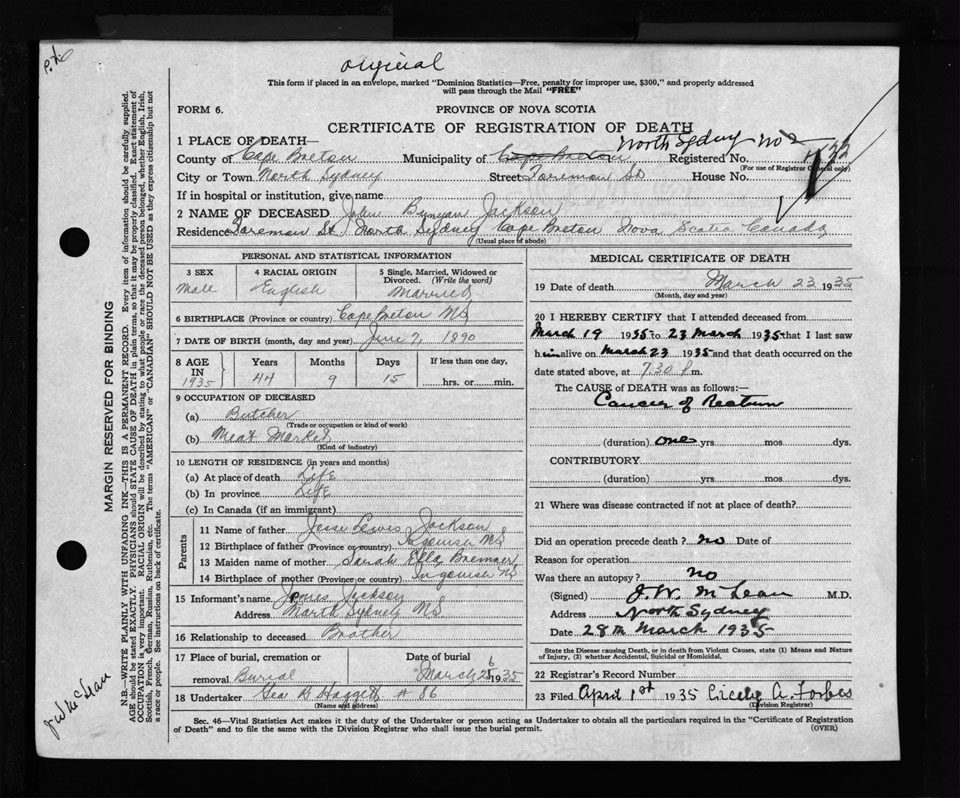 original
This form if placed in an envelope, marked "Dominion Statistics—Free, penalty for improper use, $300," and properly addressed
will pass through the Mail "FREE"
FORM 6. PROVINCE OF NOVA SCOTIA
CERTIFICATE OF REGISTRATION OF DEATH
1 PLACE OF DEATH— North Sydney No 2
County of Cape Breton Municipality of Cape Breton Registered No.
(For use of Registrar General only)
City or Town North Sydney Street Foreman St House No.
If in hospital or institution, give name
2 NAME OF DECEASED John Bunyan Jackson
Residence Foreman St North Sydney Cape Breton Nova Scotia Canada
(Usual place of abode)
PERSONAL AND STATISTICAL INFORMATION
3 SEX 4 RACIAL ORIGIN 5 Single, Married, Widowed or
Divorced. (Write the word)
Male English Married
6 BIRTHPLACE (Province or country) Cape Breton NS
7 DATE OF BIRTH (month, day and year) June 7, 1890
8 AGE Years Months Days If less than one day,
IN
1935 44 9 15 hrs. or min.
9 OCCUPATION OF DECEASED
(a) Butcher
(Trade or occupation or kind of work)
(b) Meat Market
(Kind of industry)
10 LENGTH OF RESIDENCE (in years and months)
(a) At place of death Life
(b) In province Life
(c) In Canada (if an immigrant)
Parents
11 Name of father Jesse Lewis Jackson
12 Birthplace of father (Province or country) Ingonish NS
13 Maiden name of mother Sarah Ella Bremner
14 Birthplace of mother (Province or country) Ingonish NS
15 Informant's name James Jackson
Address North Sydney NS
16 Relationship to deceased Brother
17 Place of burial, cremation or Date of burial
removal Burial March 26 1935
18 Undertaker Geo B Haggett # 86
(Name and address)
MEDICAL CERTIFICATE OF DEATH
19 Date of death March 23 1935
(Month, day and year)
20 I HEREBY CERTIFY that I attended deceased from
March 19 1935 to 23 March 1935 that I last saw
him alive on March 23 1935 and that death occurred on the
date stated above, at 7.30 P m.
The CAUSE OF DEATH was as follows:—
Cancer of Rectum
(duration) one yrs. mos. dys.
CONTRIBUTORY
(duration) yrs. mos. dys.
21 Where was disease contracted if not at place of death?
Did an operation precede death? No Date of
Reason for operation
Was there an autopsy? no
(Signed) J. W. McLean M.D.
Address North Sydney
Date 28th March 1935
State the Disease causing Death, or in death from Violent Causes, state (1) Means and Nature
of Injury, (2) whether Accidental, Suicidal or Homicidal.
22 Registrar's Record Number
23 Filed April 1st 1935 Cicely A. Forbes
(Division Registrar)
Sec. 46—Vital Statistics Act makes it the duty of the Undertaker or person acting as Undertaker to obtain all the particulars required in the "Certificate of Registration
of Death" and to file the same with the Division Registrar who shall issue the burial permit. (OVER)
MARGIN RESERVED FOR BINDING
N.B.—WRITE PLAINLY WITH UNFADING INK—THIS IS A PERMANENT RECORD. Every item of information should be carefully supplied.
AGE should be stated EXACTLY. PHYSICIANS should STATE CAUSE OF DEATH in plain terms, so that it may be properly classified. Exact statement of
OCCUPATION is very important. RACIAL ORIGIN will be described by stating to what people or race the deceased person belonged, whether English, Irish,
Scottish, French, German, Russian, Ruthenian, etc. The terms "AMERICAN" or "CANADIAN" SHOULD NOT BE USED as they express citizenship but not
a race or people. See instructions on back of certificate.
J W McLean